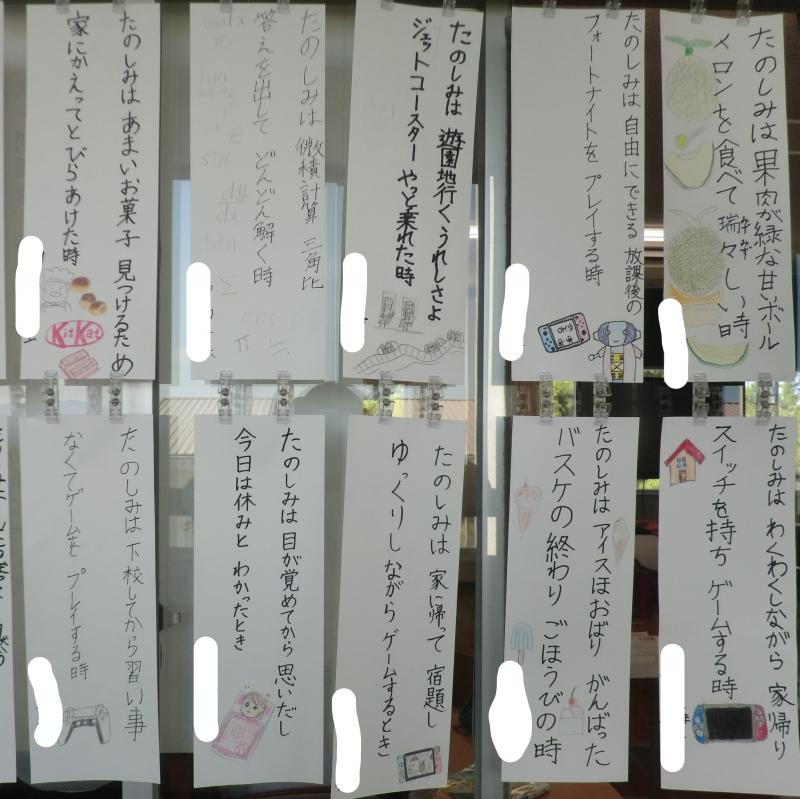 たのしみは果肉が緑な甘いボール
メロンを食べて瑞々しい時
たのしみは 自由にできる 放課後の
フォートナイトを プレイする時
たのしみは 遊園地行く うれしさよ
ジェットコースター やっと乗れた時
たのしみは 微積計算 三角比
答えを出して どんどん解く時
mod x
lim
e
sin
dy/dx
tan
Σ
cos
π
たのしみは あまいお菓子 見つけるため
家にかえって とびらあけた時
KitKat
たのしみは わくわくしながら 家帰り
スイッチを持ち ゲームする時
たのしみは アイスほおばり がんばった
バスケの終わり ごほうびの時
たのしみは 家に帰って 宿題し
ゆっくりしながら ゲームするとき
たのしみは 目が覚めてから 思いだし
今日は休みと わかったとき
たのしみは 下校してから 習い事
なくてゲームを プレイする時